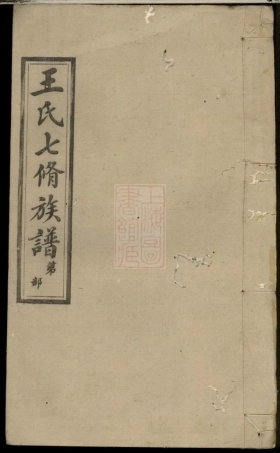 王氏七脩族譜
第 部
上海圖書館藏